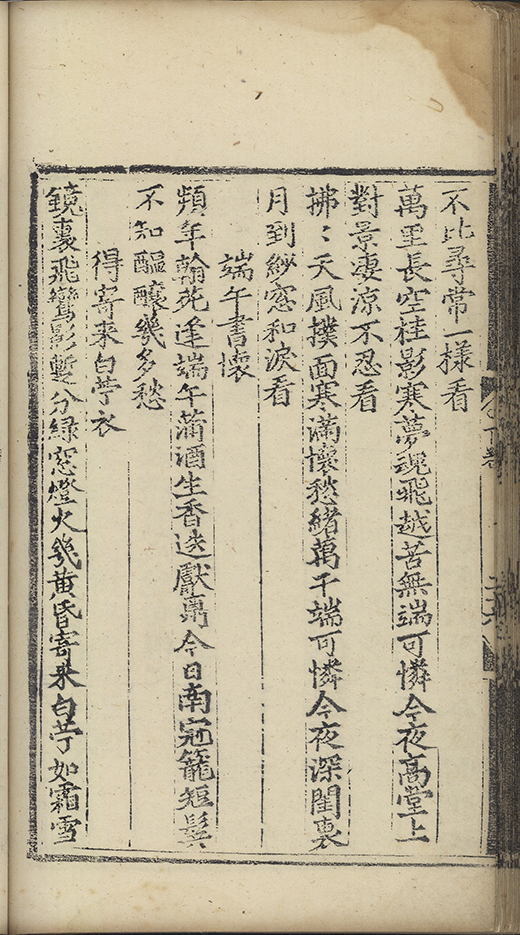 不比尋常一樣看
萬里長空桂影寒夢魂飛越苦無端可憐今夜高堂上
對景凄凉不忍看
拂〻天風撲面寒滿懷愁緒萬千端可憐今夜深閨裏
月到紗窓和淚看
端午書懷
頻年翰苑逢端午蒲酒生香迭獻鬲今日南冠籠短鬓
不知醞釀幾多愁
得寄来白苧衣
鏡裏飛鸞影蹔分緑窓燈火幾黄昏寄来白苧如霜雪